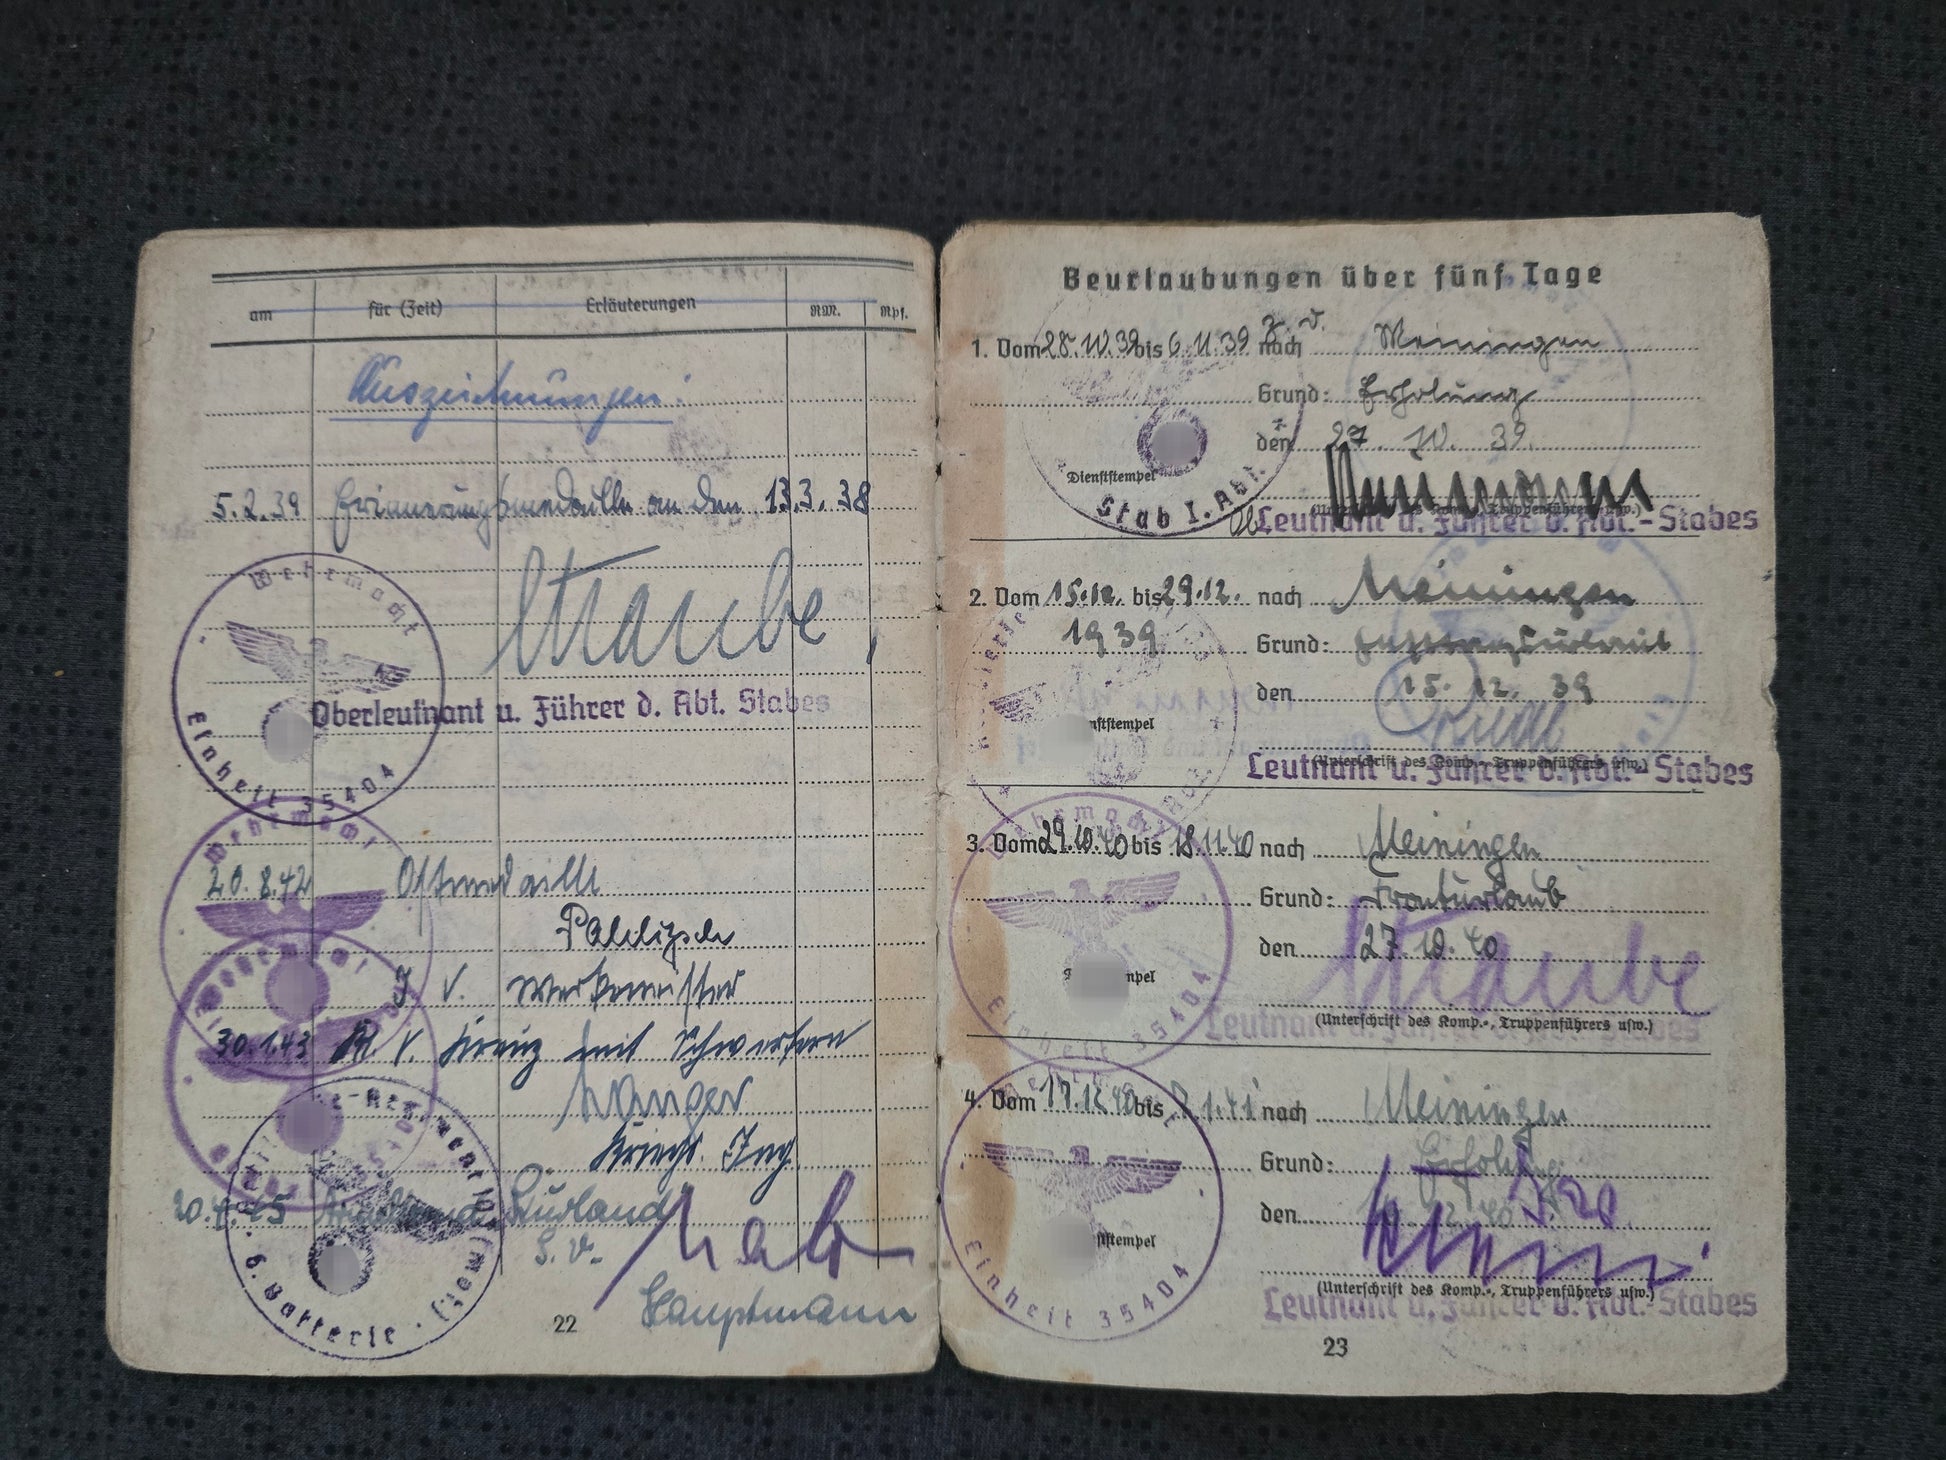 am für (Zeit) Erläuterungen RM. Rpf.
Auszeichnungen:
5.2.39 Erinnerungsmedaille an den 13.3.38
Wehrmacht
Einheit 35404
Straube,
Oberleutnant u. Führer d. Abt. Stabes
Wehrmacht
20.8.42 Ostmedaille
I. V. Werkmeister
30.1.43 K. V. Kreuz mit Schwertern
Kriegs. Ing
20.4.45 Kurland
6. Batterie (mot)
Hauptmann
22
Beurlaubungen über fünf Tage
1. Vom 28.10.39 bis 6.11.39 nach Meiningen
Grund: Erholung
den 27. 10. 39.
Dienststempel
Stab I. Abt.
(Unterschrift des Komp.-, Truppenführers usw.)
Leutnant u. Führer d. Abt.-Stabes
2. Vom 15.12. bis 29.12. nach Meiningen
1939 Grund:
den 15. 12. 39
(Unterschrift des Komp.-, Truppenführers usw.)
Leutnant u. Führer d. Abt.-Stabes
3. Vom 29.10.40 bis 18.11.40 nach Meiningen
Grund: Fronturlaub
den 27.10.40
Wehrmacht
Einheit 35404
Straube
(Unterschrift des Komp.-, Truppenführers usw.)
Leutnant u. Führer d. Abt.-Stabes
4. Vom 17.12.40 bis nach Meiningen
Grund: Erholung
den
Einheit 35404
(Unterschrift des Komp.-, Truppenführers usw.)
Leutnant u. Führer d. Abt.-Stabes
23